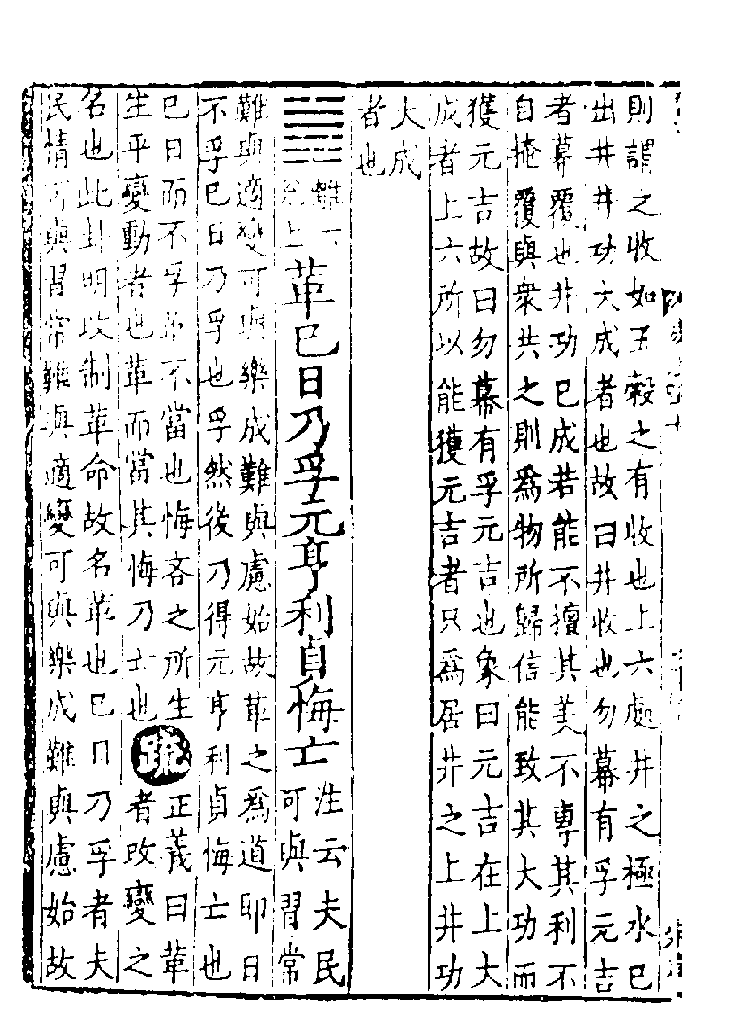 則謂之收如五穀之有收也上六處井之極水巳
出井井功大成者也故曰井收也勿幕有孚元吉
者幕覆也井功巳成若能不擅其美不專其利不
自掩覆與衆共之則爲物所歸信能致其大功而
獲元吉故曰勿幕有孚元吉也象曰元吉在上大
成者上六所以能獲元吉者只爲居井之上井功
大成
者也
離下
兌上
革巳日乃孚元亨利貞悔亡
注云夫民
可與習常
難與適變可與樂成難與慮始故革之爲道即日
不孚巳日乃孚也孚然後乃得元亨利貞悔亡也
巳日而不孚革不當也悔吝之所生
生乎變動者也革而當其悔乃亡也
疏
正義曰革
者改變之
名也此卦明改制革命故名革也巳日乃孚者夫
民情可與習常難與適變可與樂成難與慮始故